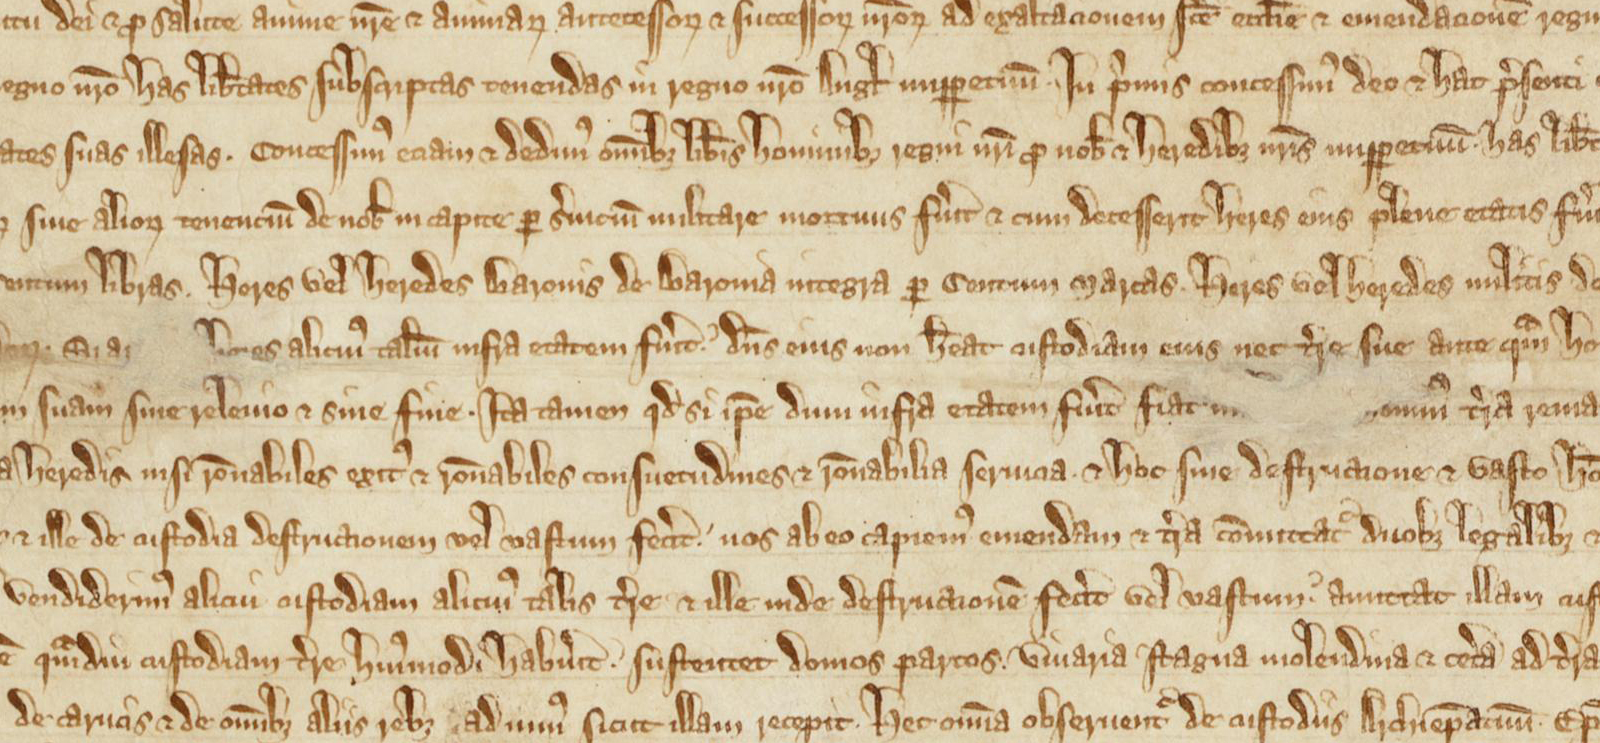 dei & ꝑ salute anime nr̄e & animaꝝ antecessoꝝ & successoꝝ nr̄oꝝ ad exaltacionem sc̄e ecclīe & emendacionē regn
regno nr̄o has lib̄tates subscriptas tenendas in regno nr̄o Angl̄ imꝑpetuū. In p̓mis concessim᷒ deo & hac p̓senti
ates suas illesas. Concessim᷒ eciam & dedim᷒ om̄ibꝫ lib̄is hominibꝫ regni nr̄i ꝓ nob̄ & heredibꝫ nr̄is imꝑpetuū. has lib̄t
siue alioꝝ tenenciū de nob̄ in capite ꝑ s̓uiciū militare mortuus fu̓it & cum decesserit heres eius plene etatis fu̓i
centum libras. Heres vel heredes Baronis de Baronia integra ꝑ Centum marcas. Heres vel heredes militis de
heres alicui᷒ taliū infra etatem fu̓it. dn̄s eius non h̄eat custodiam eius nec t̓re sue ante qͣm ho
m suam sine releuio & sine fine. Ita tamen qd̓ si ip̄e dum infra etatem fu̓it fiat t̓ra rema
a heredis nisi rōnabiles exit᷒ & rōnabiles consuetudines & rōnabilia seruicia. & hoc sine destruccione & vasto ho
& ille de custodia destruccionem vel vastum fec̓it. nos ab eo capiem᷒ emendam & t̓ra cōmittat᷑ duobꝫ legalibꝫ &
vendiderim᷒ alicui custodiam alicui᷒ talis t̓re & ille inde destruccionē fec̓it vel vastum. amittat illam cust
qͣmdiu custodiam t̓re hui᷒modi habu̓it. sustentet domos parcos. viuaria stagna molendina & cet̓a ad t̓ra
de carucis & de om̄ibꝫ aliis rebꝫ ad min᷒ sicut illam recepit. Hec om̄ia obseruent᷑ de custodiis Archiep̄atuū. Ep̄